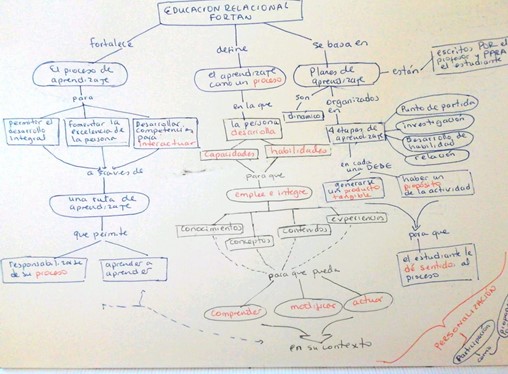 EDUCACION RELACIONAL
FONTAN
fortalece
define
se basa en
El proceso de
aprendizaje
el aprendizaje
como un proceso
Planes de
aprendizaje
están
escritos POR el
profesor y PARA
el estudiante
para
en la que
son
dinamico
organizados
en
permitir el
desarrollo
integral
Fomentar la
excelencia de
la persona
Desarrollar
competencias
para
interactuar
la persona
desarrolla
capacidades
habilidades
4 etapas de
aprendizaje
Punto de partida
investigación
Desarrollo de
habilidad
relación
a traves de
para que
en cada
una DEBE
una ruta de
aprendizaje
emplee e integre
generarse
un producto
tangible
haber un
propósito
de la actividad
que permite
conocimientos
conceptos
contenidos
experiencias
para que
responsabilizarse
de su proceso
aprender a
aprender
para que pueda
el estudiante le
dé sentido al
proceso
comprender
modificar
actuar
en su contexto
PERSONALIZACIÓN
Participación
como